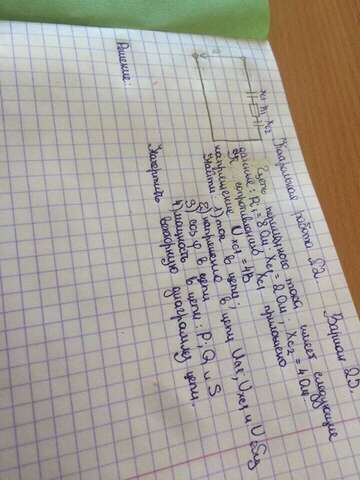 Контрольная работа №2.
Вариант 25.
Xc1 R1 Xc2
Цепь переменного тока имеет следующие
данные: R1 = 8 Ом, Xc1 = 2 Ом, Xc2 = 4 Ом
К сопротивлению Xc1 приложено
напряжение Uxc1 = 4В
Найти 1) ток в цепи;
2) напряжение в цепи Uxc1, Uxc2 и U
3) cos φ в цепи
4) мощность в цепи: P, Q и S
Начертить векторную диаграмму цепи.
Решение: